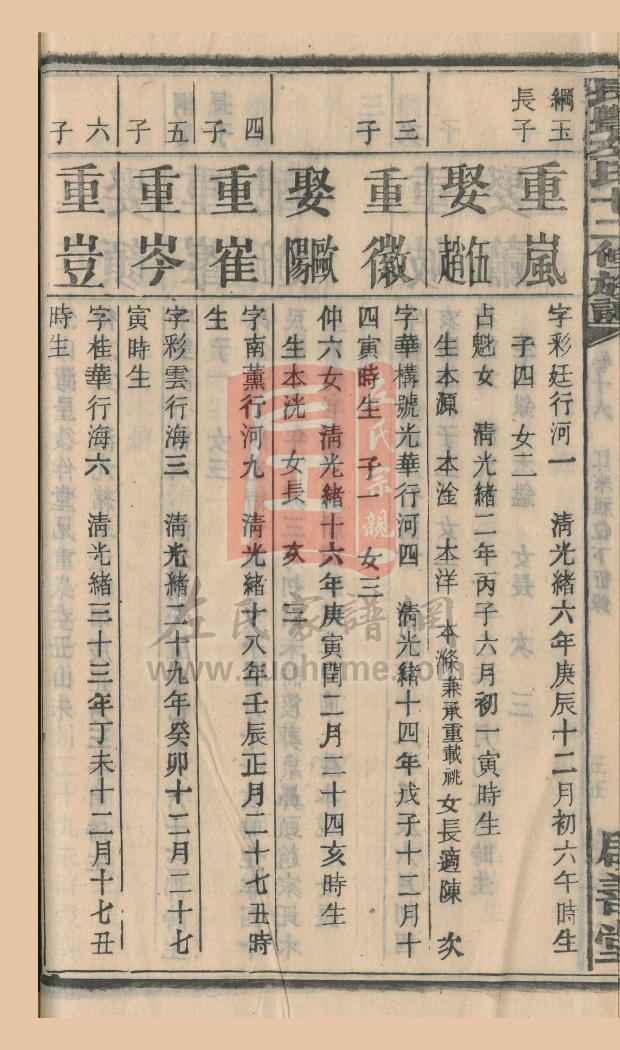 綱玉
長子
重嵐
字彩廷行河一　清光緒六年庚辰十二月初六午時生
子四　女二
娶伍趙
占魁女　清光緒二年丙子六月初一寅時生
生本源　本淦　本洋　本滌兼承重載祧　女長適陳　次
三子
重徽
字華構號光華行河四　清光緒十四年戊子十二月十
四寅時生　子一　女三
娶歐陽
仲六女　清光緒十六年庚寅閏二月二十四亥時生
生本洸　女長　次　三
四子
重崔
字南薰行河九　清光緒十八年壬辰正月二十七丑時
生
五子
重岑
字彩雲行海三　清光緒二十九年癸卯十二月二十七
寅時生
六子
重豈
字桂華行海六　清光緒三十三年丁未十二月十七丑
時生
左氏宗親
左氏家譜網
www.zuohome.com